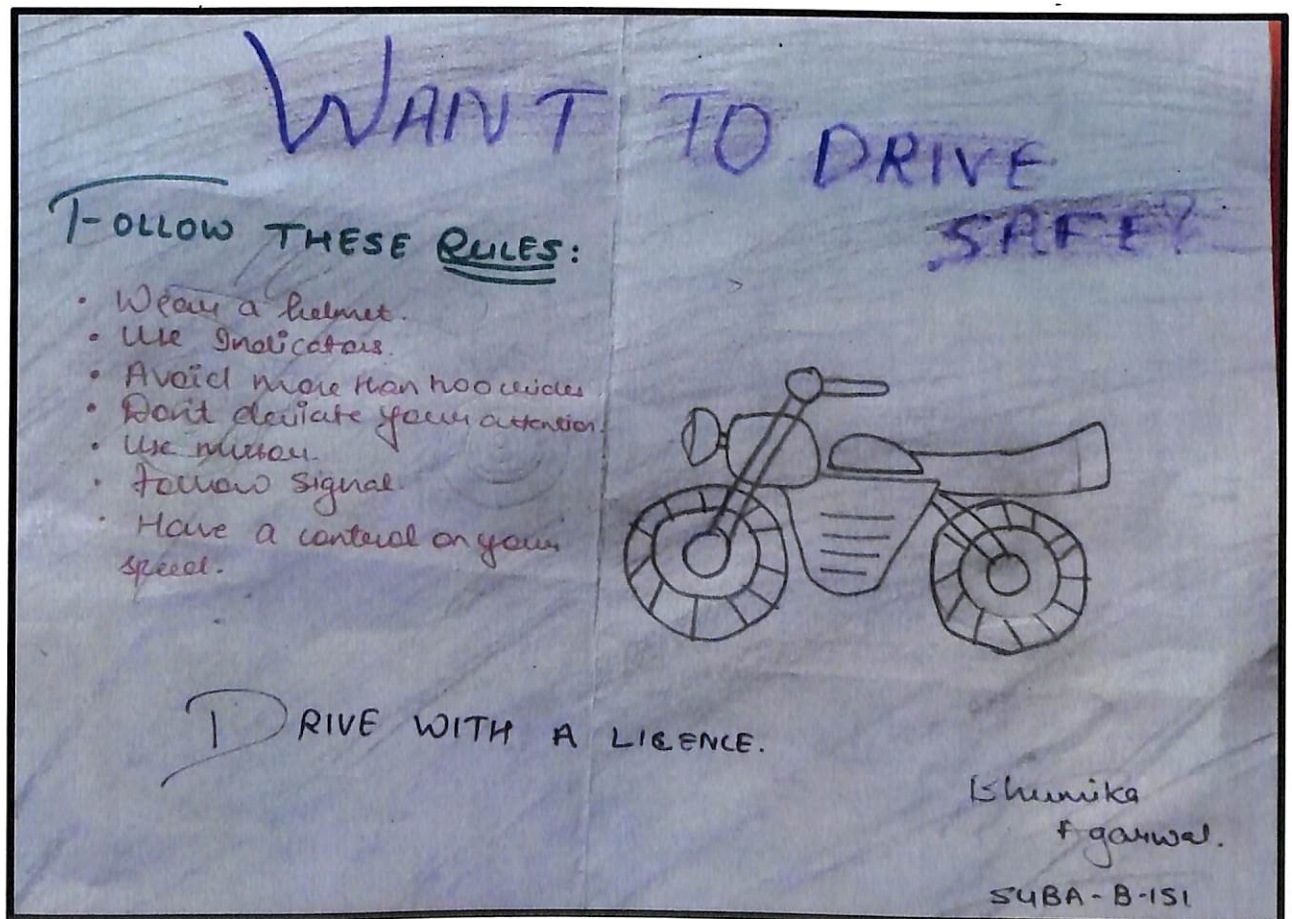 WANT TO DRIVE
SAFE?
FOLLOW THESE RULES:
• Wear a helmet.
• Use Indicators.
• Avoid more than two riders
• Don't deviate your attention.
• Use mirror.
• Follow Signal.
• Have a control on your
speed.
DRIVE WITH A LICENCE.
Bhumika
Agarwal.
SYBA-B-151